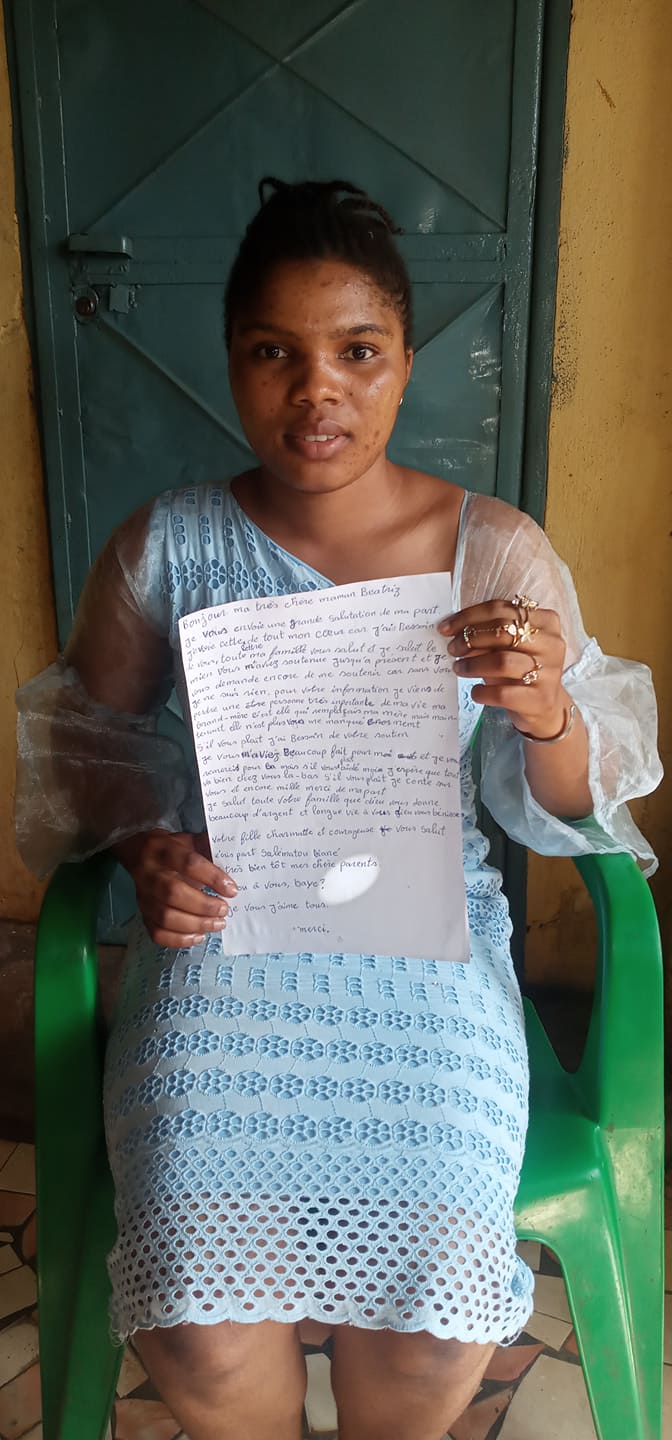 Bonjour ma très chère maman Beatriz
je vous envoie une grande salutation de ma part
j'envoie cette de tout mon cœur car j'ais Besoin
à vous, toute ma famille vous salut et je salut le
mien vous m'aviez soutenue jusqu'à présent et je
vous demande encore de me soutenir car sans vous
je ne suis rien, pour votre information je viens de
perdue une personne très importante de ma vie ma
Grand-mère c'est elle qui remplaçais ma mère mais main-
tenant elle n'est plus vous me manque énormement
s'il vous plait j'ai Besoin de votre soutien
je vous m'aviez Beaucoup fait pour moi et je vous
remercie pour ça mais s'il vous aidé moi j'espère que tout
va bien chez vous la-bas s'il vous plait je conte sur
vous et encore mille merci de ma part
je salut toute votre famille que dieu vous donne
beaucoup d'argent et longue vie à vous dieu vous bénisse
votre fille charmante et courageuse je vous salut
part Salématou
très bien tôt mes chère parents
ou à vous, baye?
je vous j'aime tous.
merci.